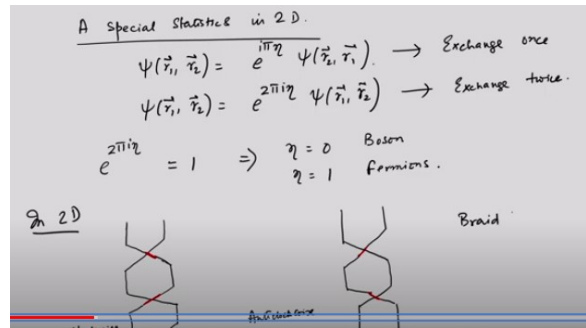 A special statistics in 2D.
ψ(r⃗₁, r⃗₂) = e^{iπη} ψ(r⃗₂, r⃗₁). → Exchange once
ψ(r⃗₁, r⃗₂) = e^{2πiη} ψ(r⃗₁, r⃗₂) → Exchange twice.
e^{2πiη} = 1 ⇒ η = 0 Boson
η = 1 fermions.
In 2D
Braid
Anticlockwise